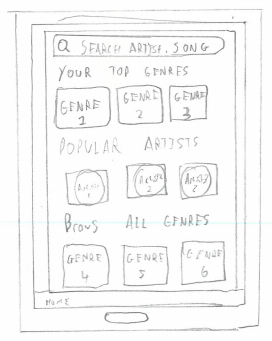 SEARCH ARTIST, SONG
YOUR TOP GENRES
GENRE 1
GENRE 2
GENRE 3
POPULAR ARTISTS
ARTIST 1
ARTIST 2
ARTIST 2
Brows ALL GENRES
GENRE 4
GENRE 5
GENRE 6
HOME